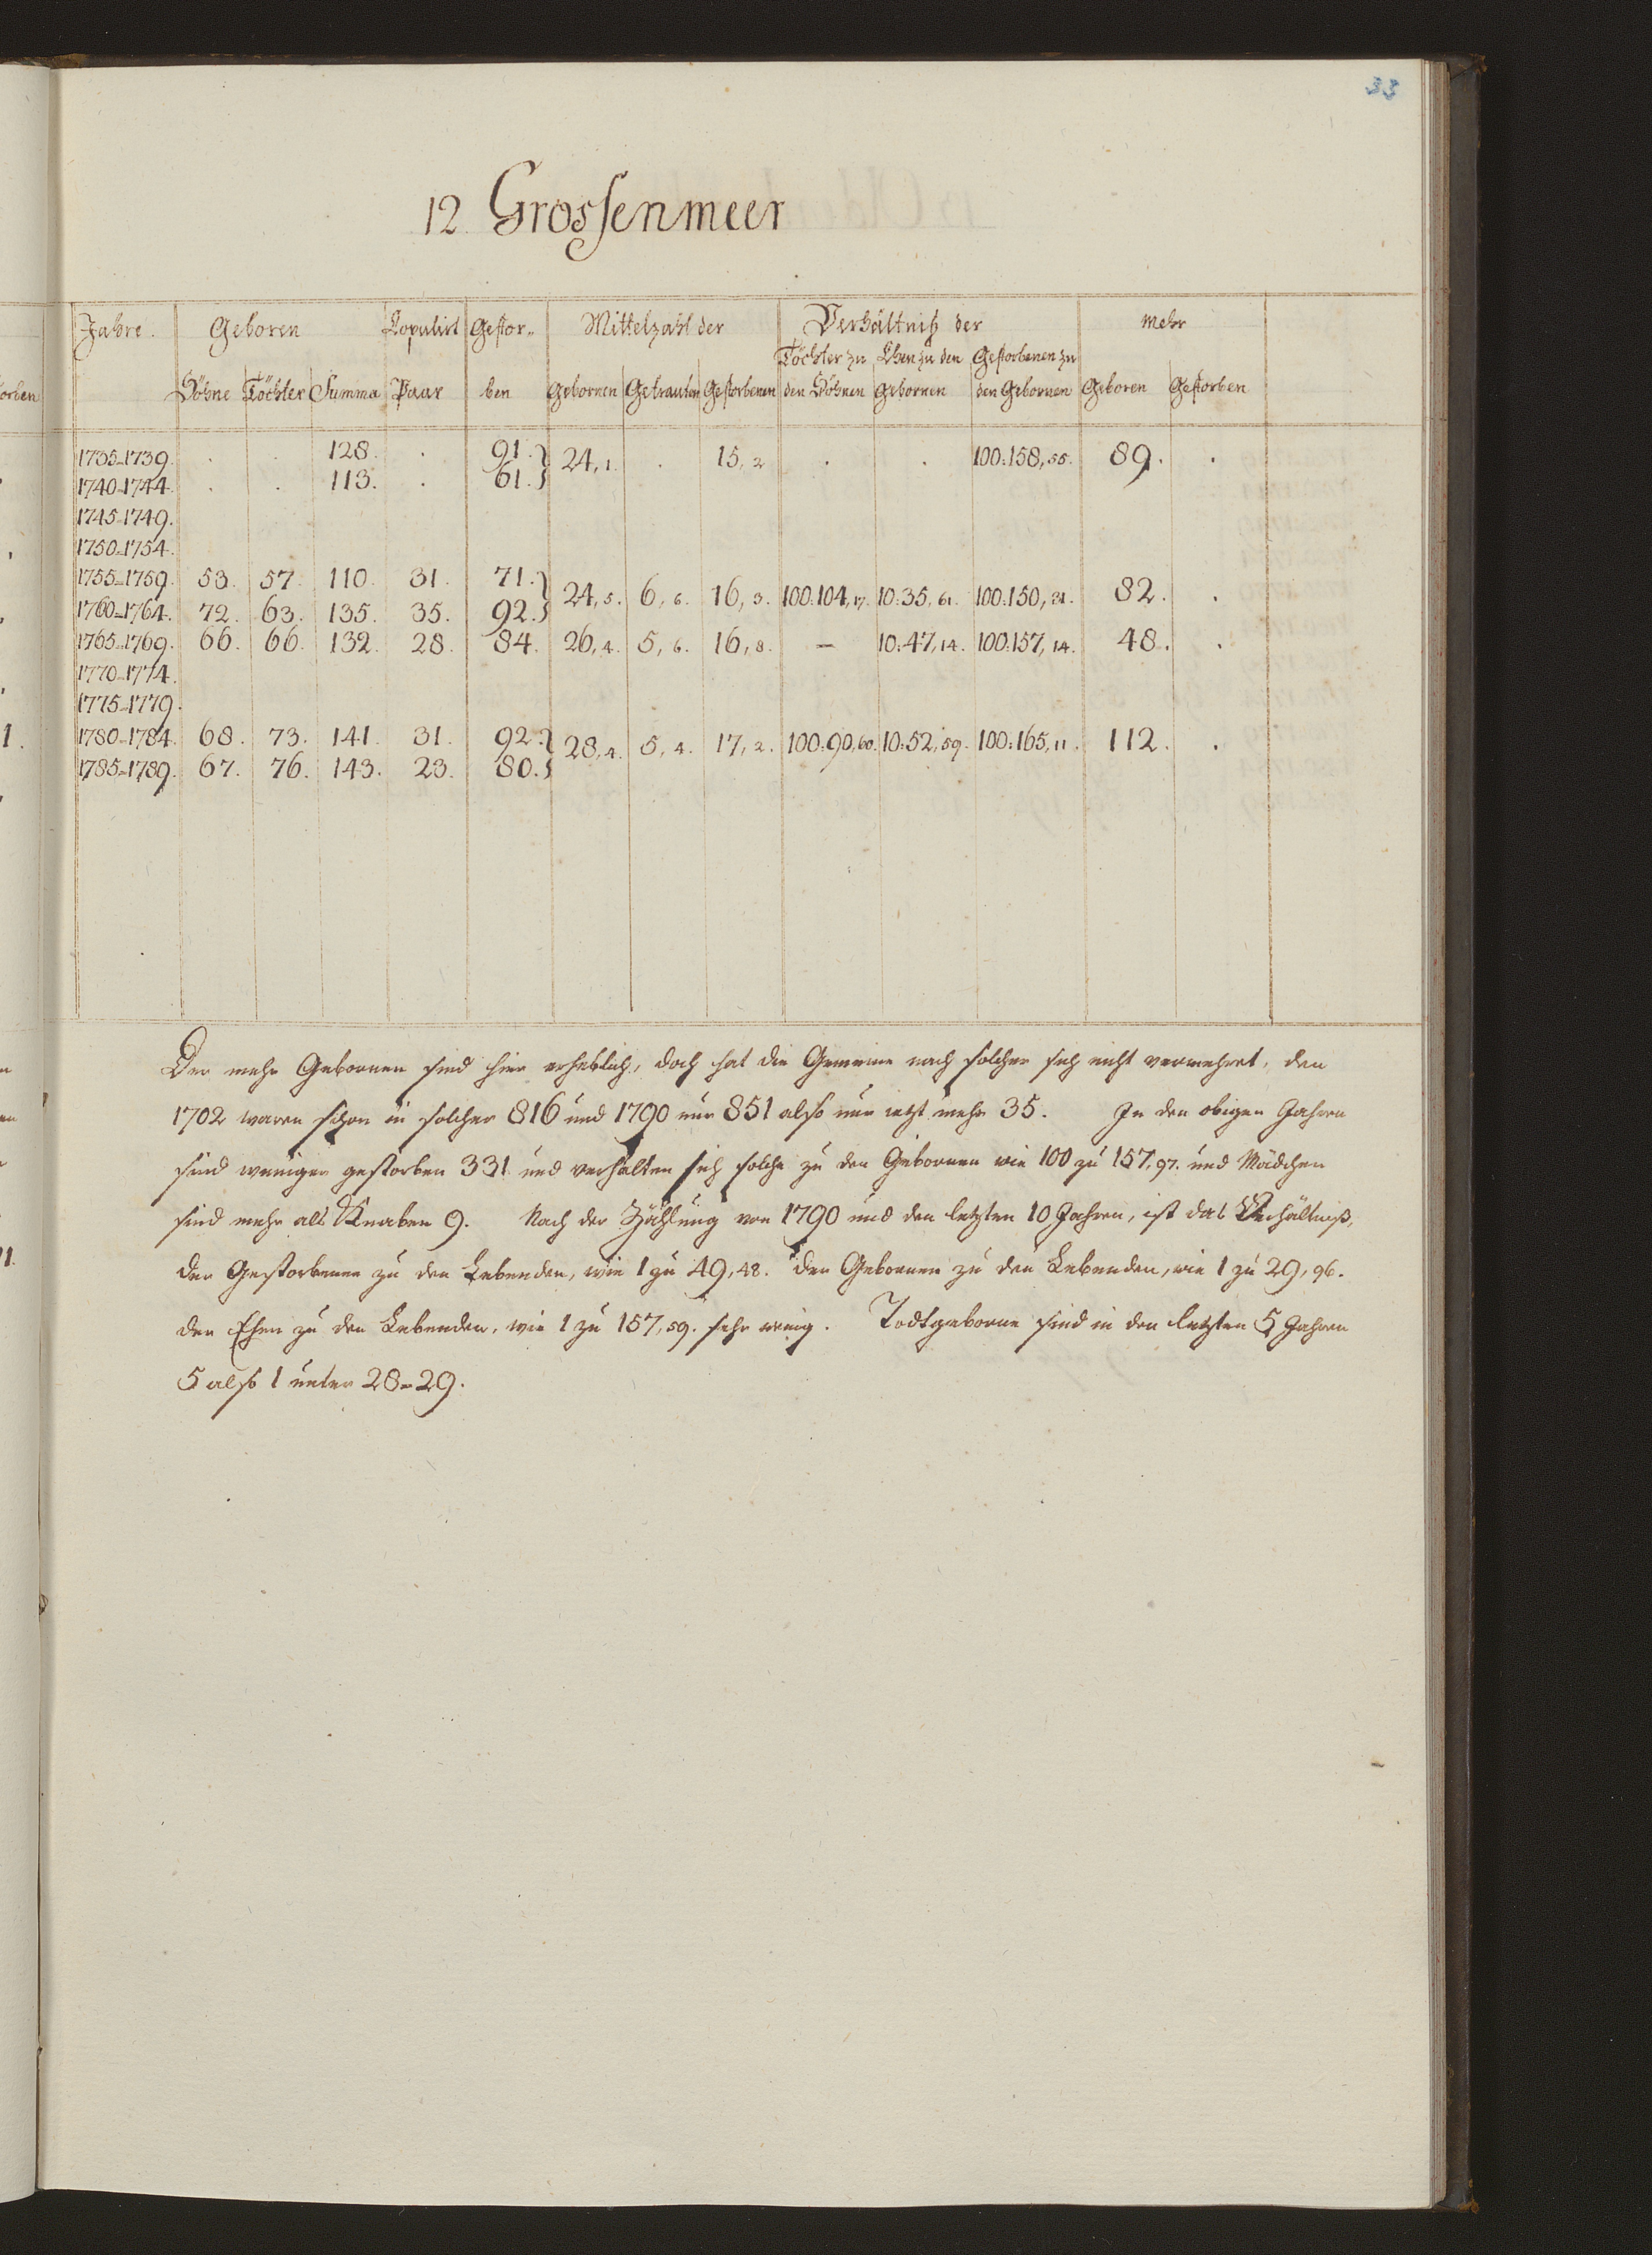 33
12. Grossenmeer
Jahre. Geboren Kopulirt Gestor„ Mittelzahl der Verhältniß der mehr
Töchter zu Ehen zu den Gestorbenen zu
orben Söhne Töchter Summa Paar ben Gebornen Getrauten Gestorbenen den Söhnen Gebornen den Gebornen Geboren Gestorben
1735-1739. . . 128. . 91. } 24,1. . 15,2 . . 100:158,55. 89. .
1740-1744. . . 113. . 61. }
1745-1749.
1750-1754.
1755-1759. 53. 57. 110. 31. 71. }
1760-1764. 72. 63. 135. 35. 92. } 24,5. 6,6. 16,3. 100:104,17. 10:35,61. 100:150,31. 82. .
1765-1769. 66. 66. 132. 28. 84. 26,4. 5,6. 16,8. – 10:47,14. 100:157,14. 48. .
1770-1774.
1775-1779.
1. 1780-1784. 68. 73. 141. 31. 92. } 28,4. 5,4. 17,2. 100:90,60. 10:52,59. 100:165,11. 112. .
1785-1789. 67. 76. 143. 23. 80. }
Der mehr Gebornen sind hier erheblich, doch hat die Gemeine nach solcher sich nicht vermehret, den
1702 waren schon in solcher 816 und 1790 nur 851 also nur jetzt mehr 35. In den obigen Jahren
sind weniger gestorben 331 und verhalten sich solche zu den Gebornen wie 100 zu 157,97. und Mädchen
sind mehr als Knaben 9. Nach der Zählung von 1790 und den letzten 10 Jahren, ist das Verhältniß,
der Gestorbenen zu den Lebenden, wie 1 zu 49,48. der Gebornen zu den Lebenden, wie 1 zu 29,96.
der Ehen zu den Lebenden, wie 1 zu 157,59. sehr wenig. Todtgeborne sind in den letzten 5 Jahren
5 also 1 unter 28-29.